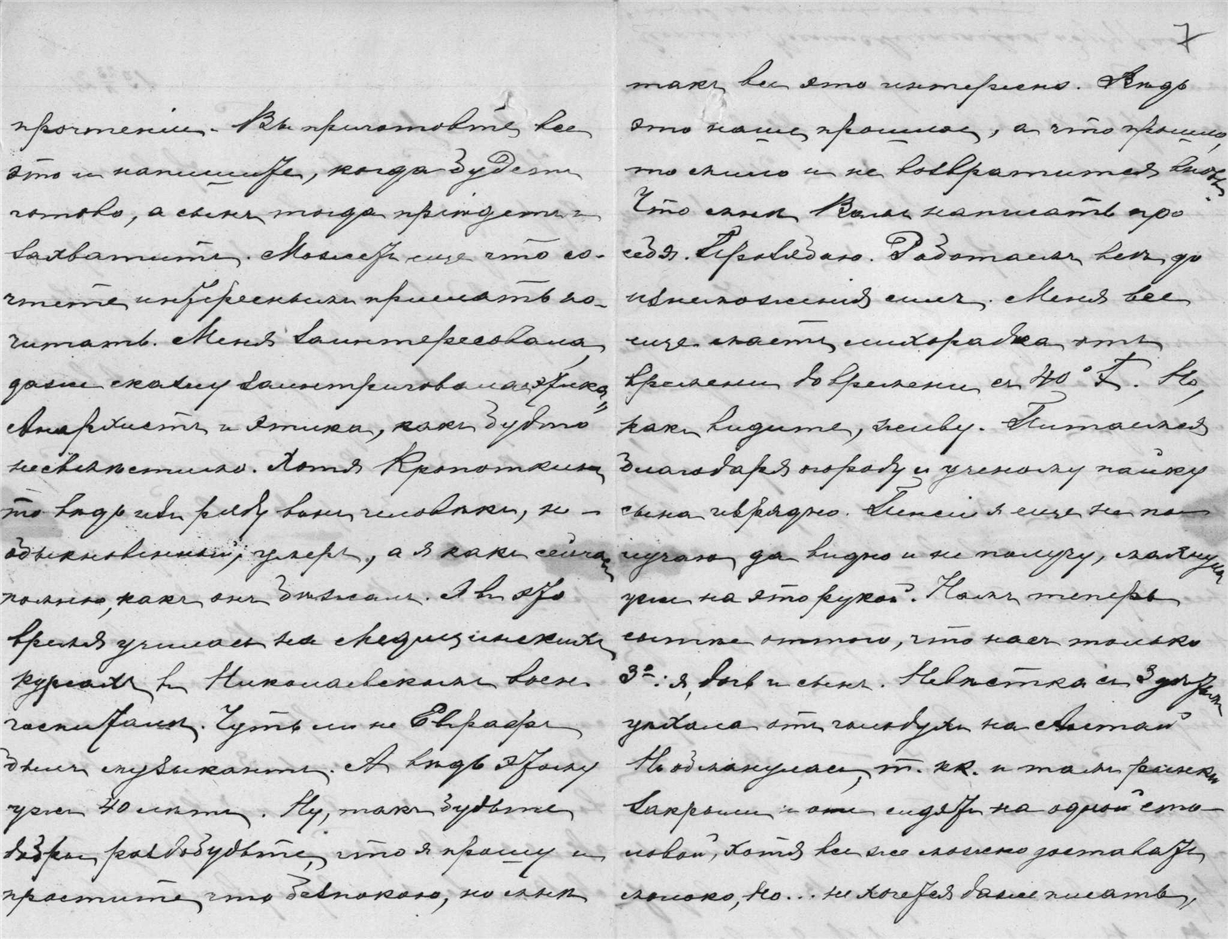 прочтении. Вы приготовьте все
это и напишите, когда будет
готово, а сын тогда приидетъ и
захватитъ. Можетъ еще что со-
чтете интереснымъ прислать по-
читать. Меня заинтересовала,
даже скажу заинтриговала "этика".
Анархистъ и этика, какъ будто
несвѣместимо. Хотя Кропоткинъ
то вѣдь изъ ряду вонъ человѣкъ, не-
обыкновенный, умеръ, а я какъ сейчасъ
помню, какъ онъ бѣжалъ. Я въ это
время училась на медицинскихъ
курсахъ въ Николаевскомъ воен.
госпиталѣ. Чуть ли не Евграфъ
былъ музыкантъ. А вѣдь этому
уже 40 лѣтъ. Ну, такъ будьте
добры раздобудьте, что я прошу и
простите, что безпокою, но мнѣ
7
такъ все это интересно. Вѣдь
это наше прошлое, а что прошло,
то мило и не возвратится вновь.
Что мнѣ Вамъ написать про
себя. Прозябаю. Работаемъ всѣ до
изнеможения силъ. Меня все
еще мастъ лихорадка отъ
времени до времени съ 40° Т. Но,
какъ видите, живу. Питаемся
благодаря огороду и ученому пайку
сына изрядно. Пенсии я еще не по-
лучаю да видно и не получу, махнула
уже на это рукой. Намъ теперь
сытнѣе оттого, что насъ только
3е: я, и сынъ. Невѣстка съ 3 дѣтьми
уѣхала отъ голодухи на Алтай
Но обманулась, т. кк. и тамъ рынки
закрыли и они сидятъ на одной сто-
ловой, хотя все же можно доставать
молоко, но... не хочется даже писать,